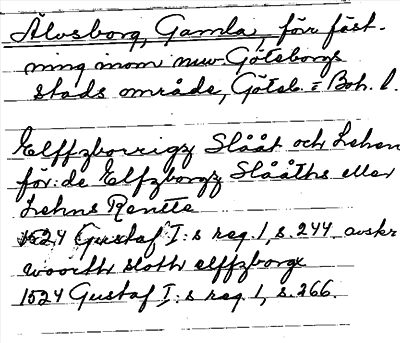 Älvsborg, Gamla, förr fäst-
ning inom nuv Göteborgs
stads område, Göteb. o Boh. l.
Elffzborrigz Slååt och Lehen
för: de Elfzborgz Slååths eller
Lehns Rentte
1524 Gustaf I:s reg. 1, s. 244 avskr
woorth sloth elffzborge
1524 Gustaf I:s reg. 1, s. 266.